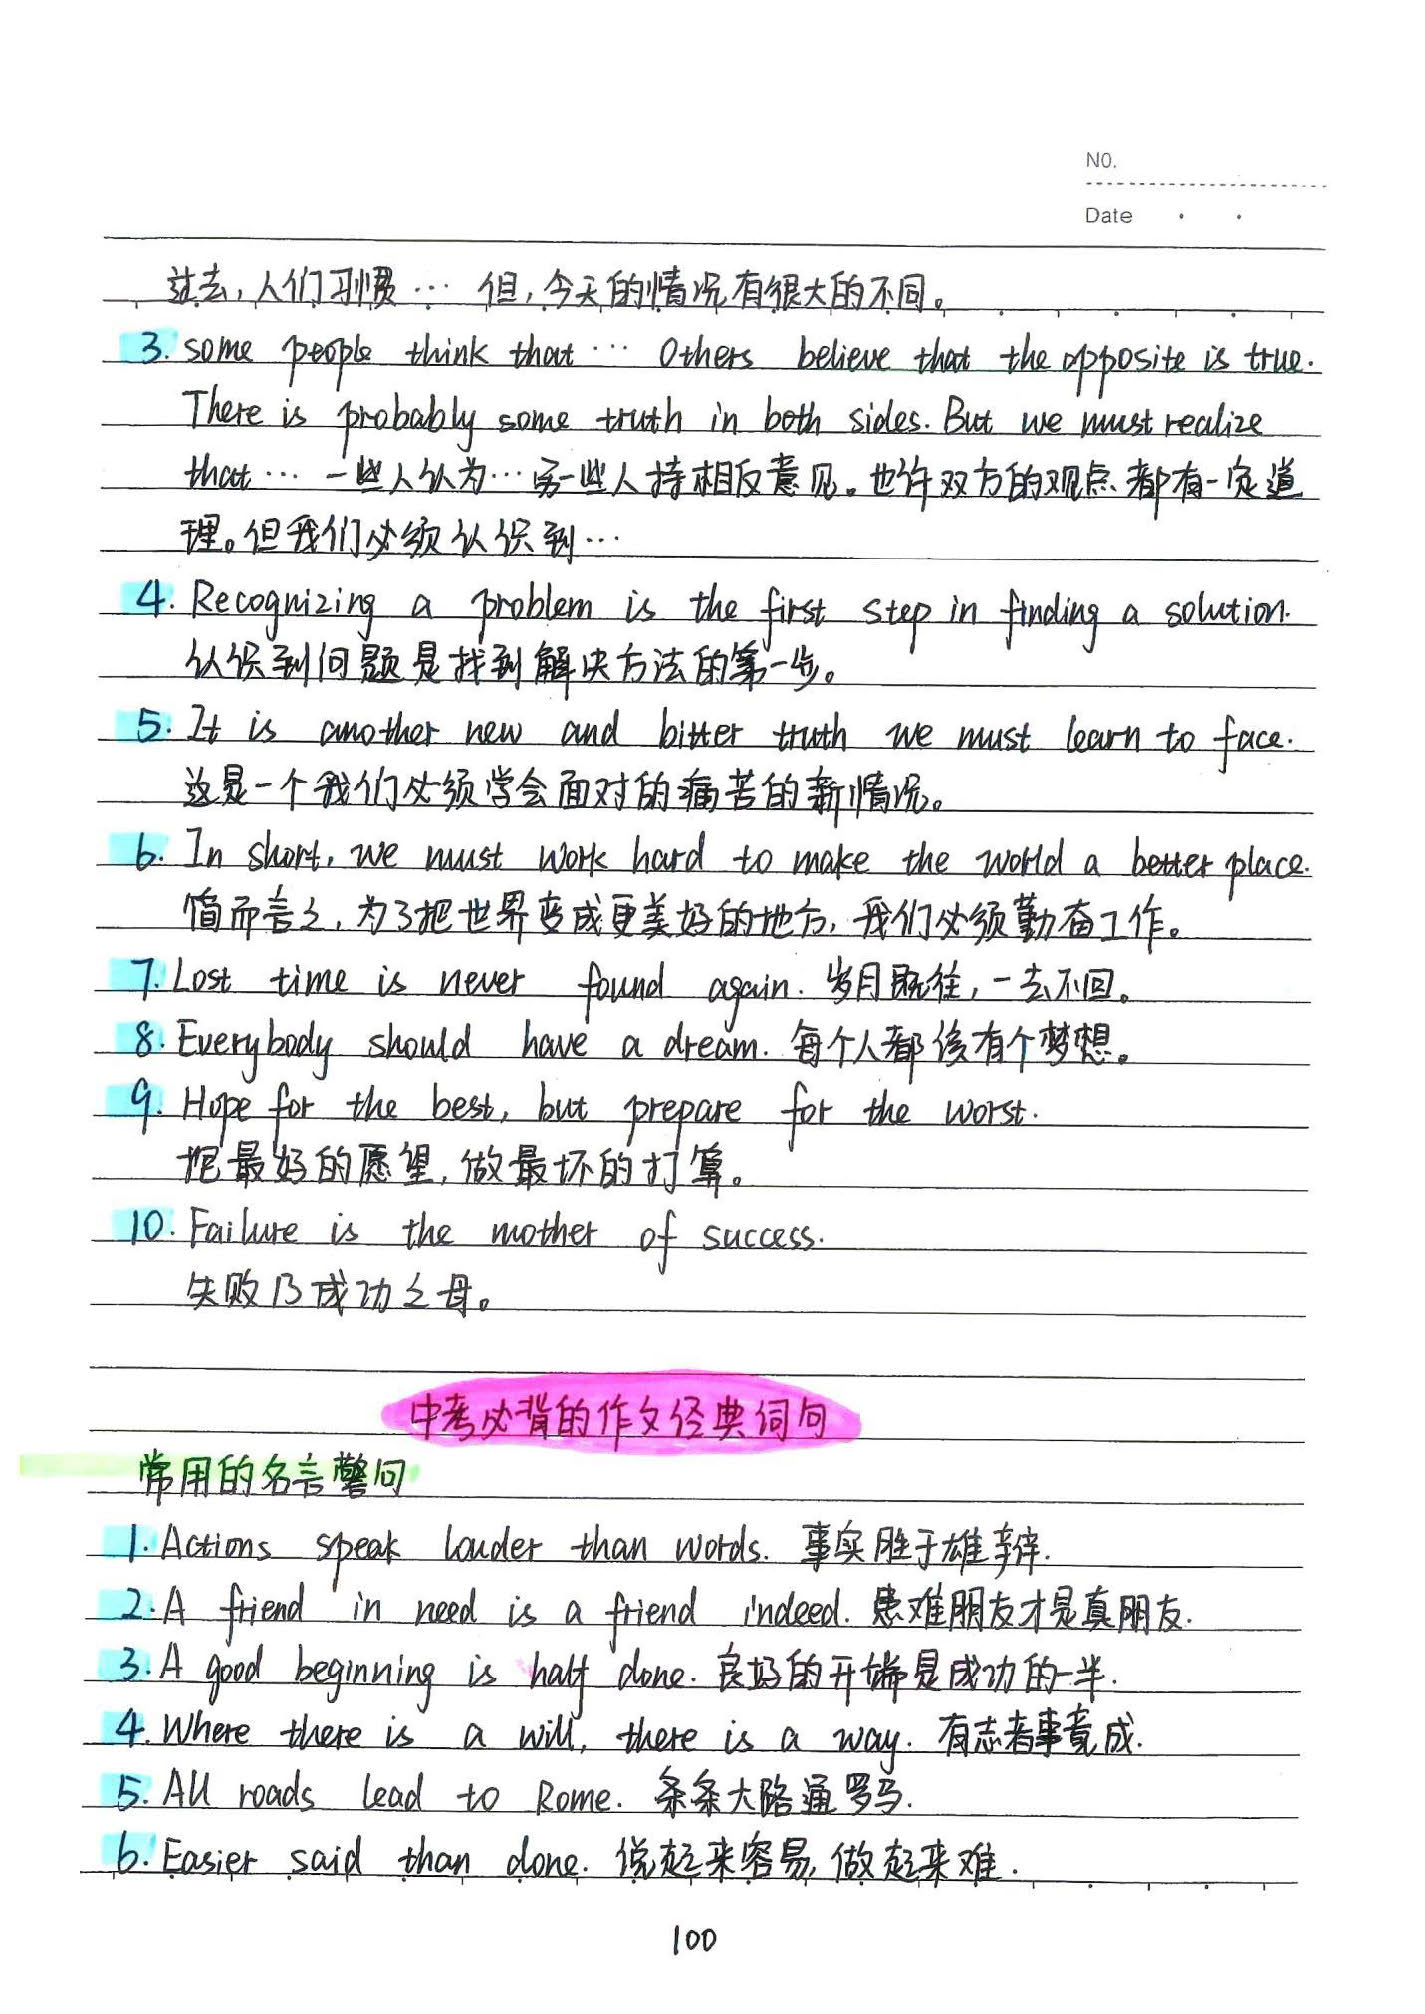 NO.
Date
过去,人们习惯… 但,今天的情况有很大的不同。
3. some people think that… Others believe that the opposite is true.
There is probably some truth in both sides. But we must realize
that… 一些人认为…另一些人持相反意见。也许双方的观点都有一定道
理。但我们必须认识到…
4. Recognizing a problem is the first step in finding a solution.
认识到问题是找到解决方法的第一步。
5. It is another new and bitter truth we must learn to face.
这是一个我们必须学会面对的痛苦的新情况。
6. In short, we must work hard to make the world a better place.
简而言之,为了把世界变成更美好的地方,我们必须勤奋工作。
7. Lost time is never found again. 岁月既往,一去不回。
8. Everybody should have a dream. 每个人都该有个梦想。
9. Hope for the best, but prepare for the worst.
抱最好的愿望,做最坏的打算。
10. Failure is the mother of success.
失败乃成功之母。
中考必背的作文经典词句
常用的名言警句
1. Actions speak louder than words. 事实胜于雄辩.
2. A friend in need is a friend indeed. 患难朋友才是真朋友.
3. A good beginning is half done. 良好的开端是成功的一半.
4. Where there is a will, there is a way. 有志者事竟成.
5. All roads lead to Rome. 条条大路通罗马.
6. Easier said than done. 说起来容易,做起来难.
100